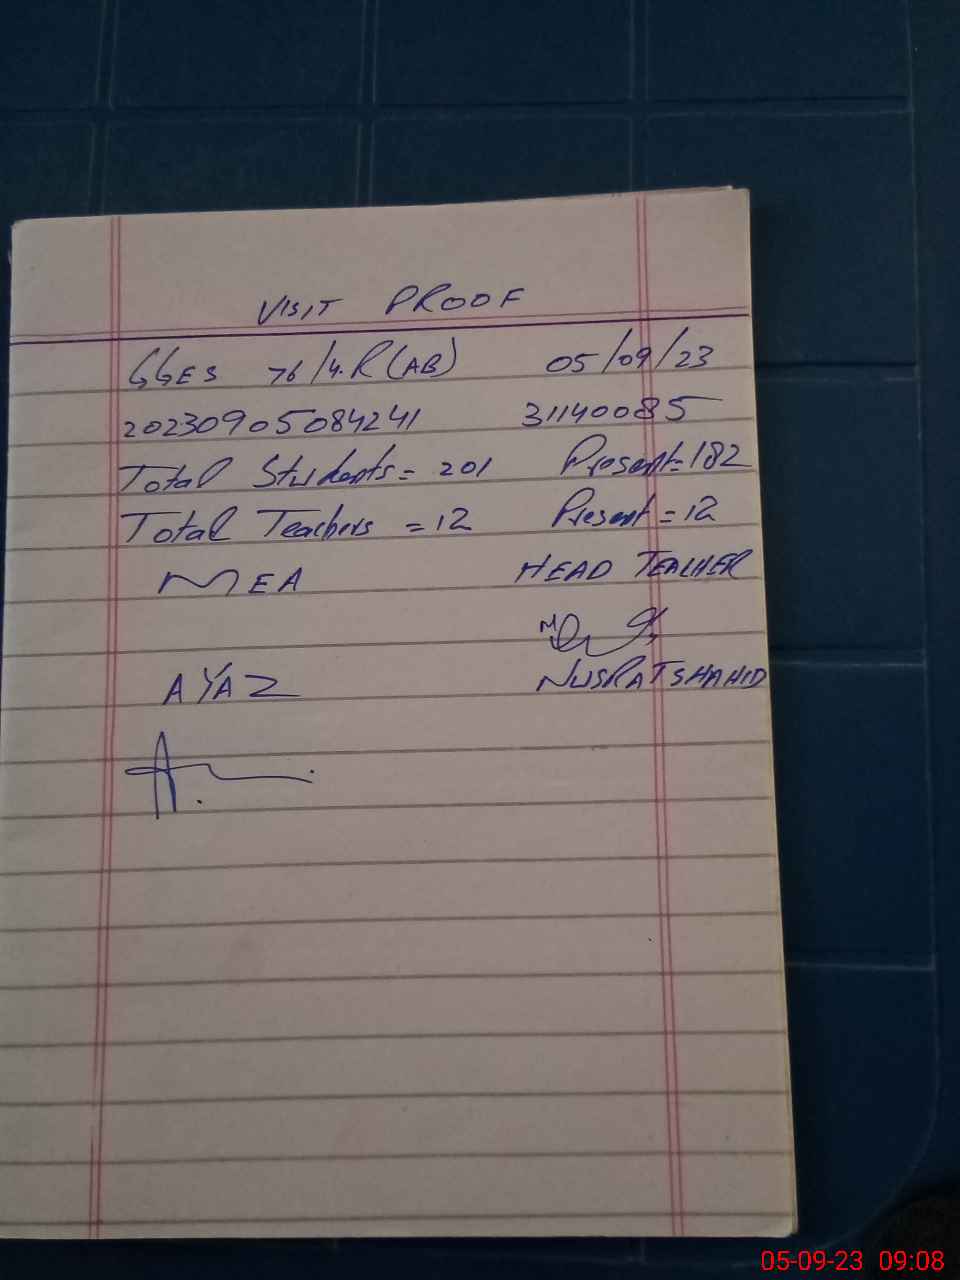 VISIT PROOF
GGES 76/4.R (AB) 05/09/23
20230905084241 31140085
Total Students = 201 Present = 182
Total Teachers = 12 Present = 12
MEA HEAD TEACHER
AYAZ NUSRAT SHAHID
05-09-23 09:08